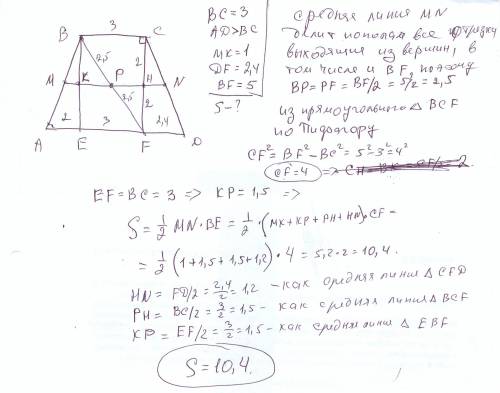 3
B
C
2,5
2
M
K
P
H
N
2,5
2
2
3
2,4
A
E
F
D
BC = 3
AD > BC
MK = 1
DF = 2,4
BF = 5
S - ?
средняя линия MN
делит пополам все отрезки
выходящие из вершин, в
том числе и BF, поэтому
BP = PF = BF/2 = 5/2 = 2,5
из прямоугольного Δ BCF
по Пифагору
CF² = BF² - BC² = 5² - 3² = 4²
CF = 4 =>
EF = BC = 3 => KP = 1,5 =>
S = 1/2 MN · BE = 1/2 · (MK + KP + PH + HN) · CF =
= 1/2 (1 + 1,5 + 1,5 + 1,2) · 4 = 5,2 · 2 = 10,4.
HN = FD/2 = 2,4/2 = 1,2 - как средняя линия Δ CFD
PH = BC/2 = 3/2 = 1,5 - как средняя линия Δ BCF
KP = EF/2 = 3/2 = 1,5 - как средняя линия Δ EBF
S = 10,4.